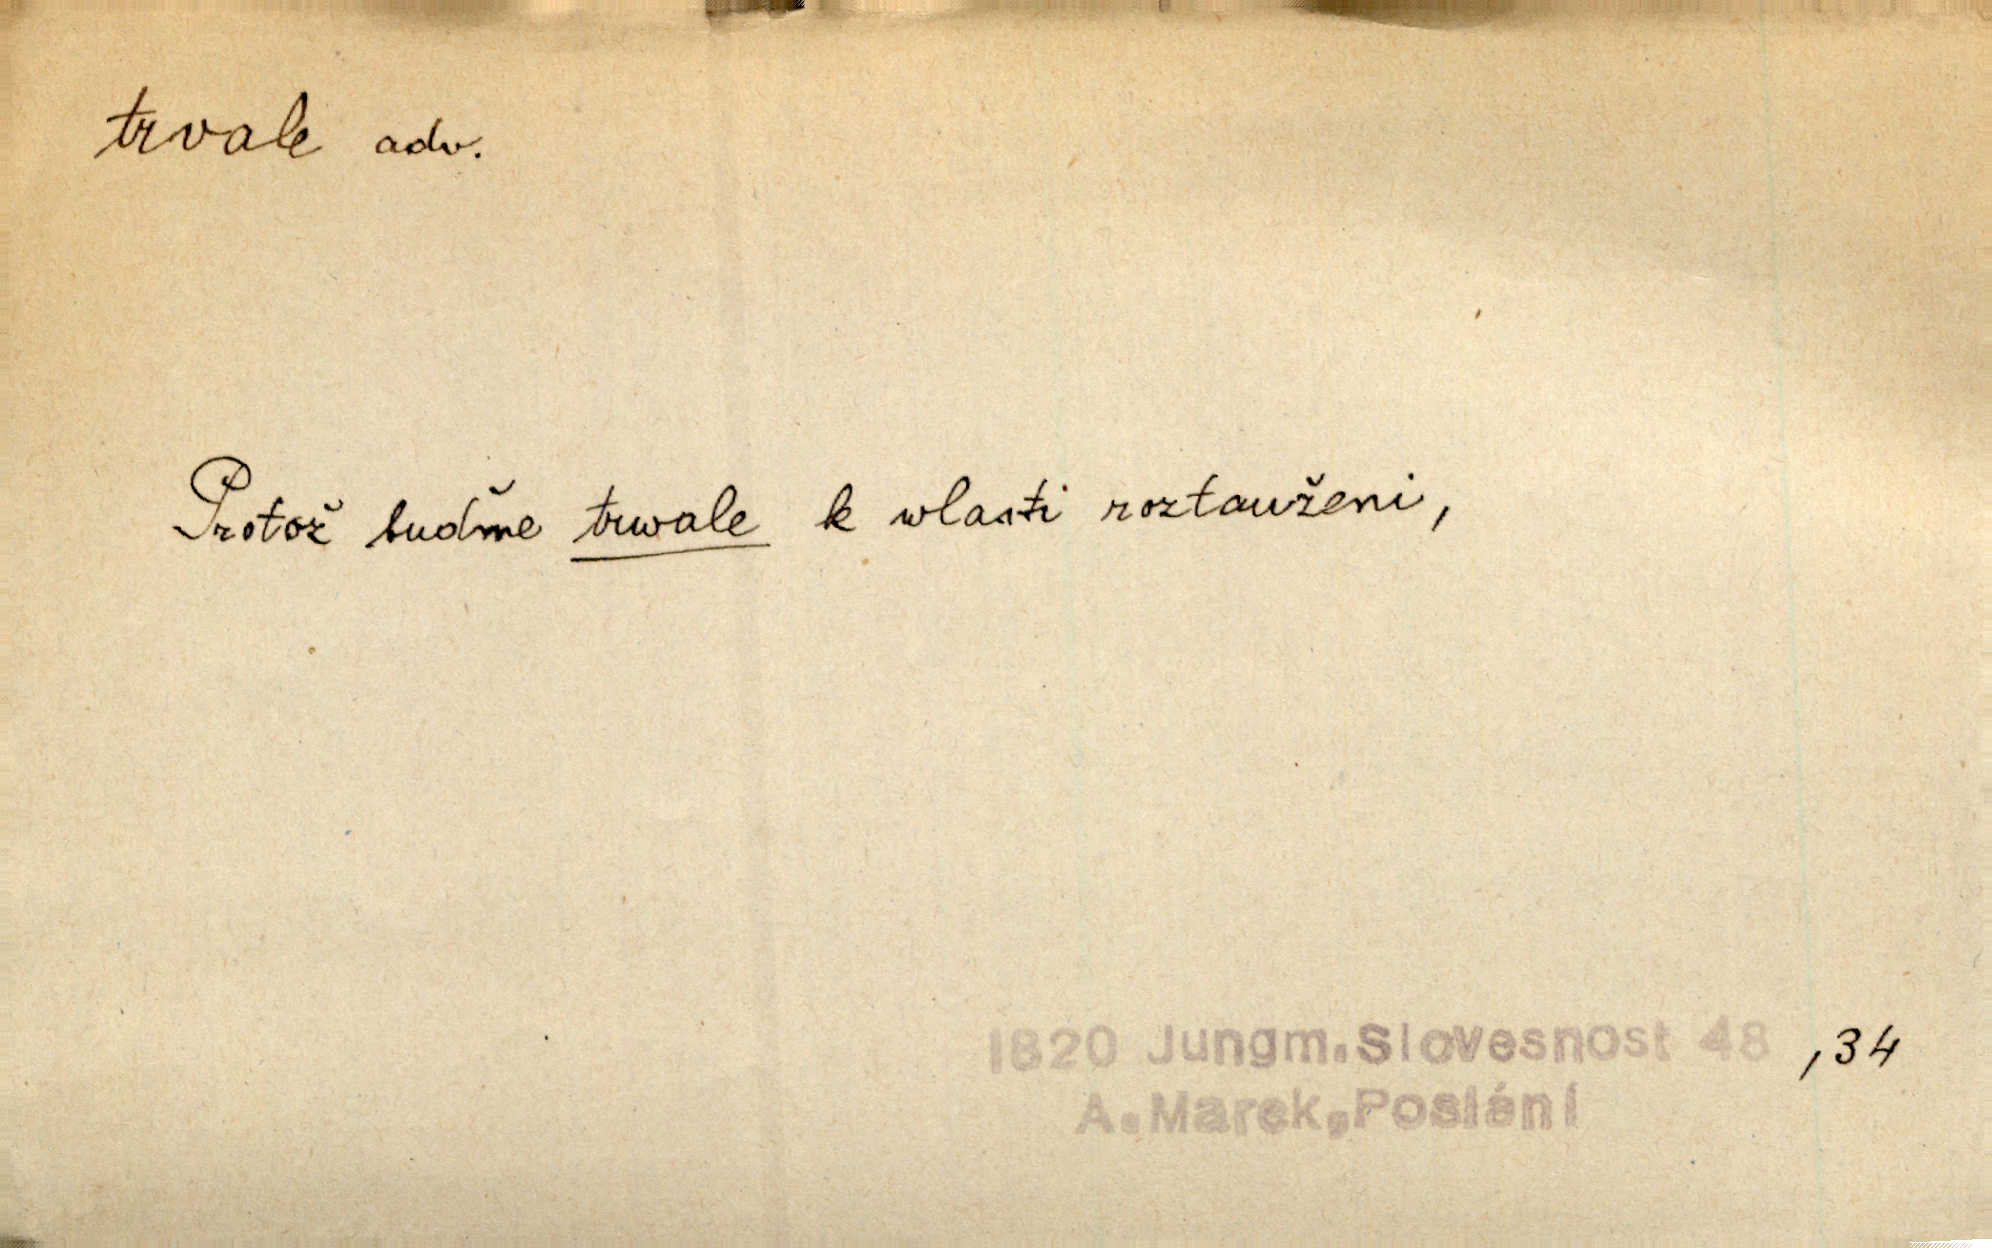 trvale adv.
Protož buďme trwale k wlasti roztauženi,
1820 Jungm. Slovesnost 48 , 34
A. Marek, Poslání